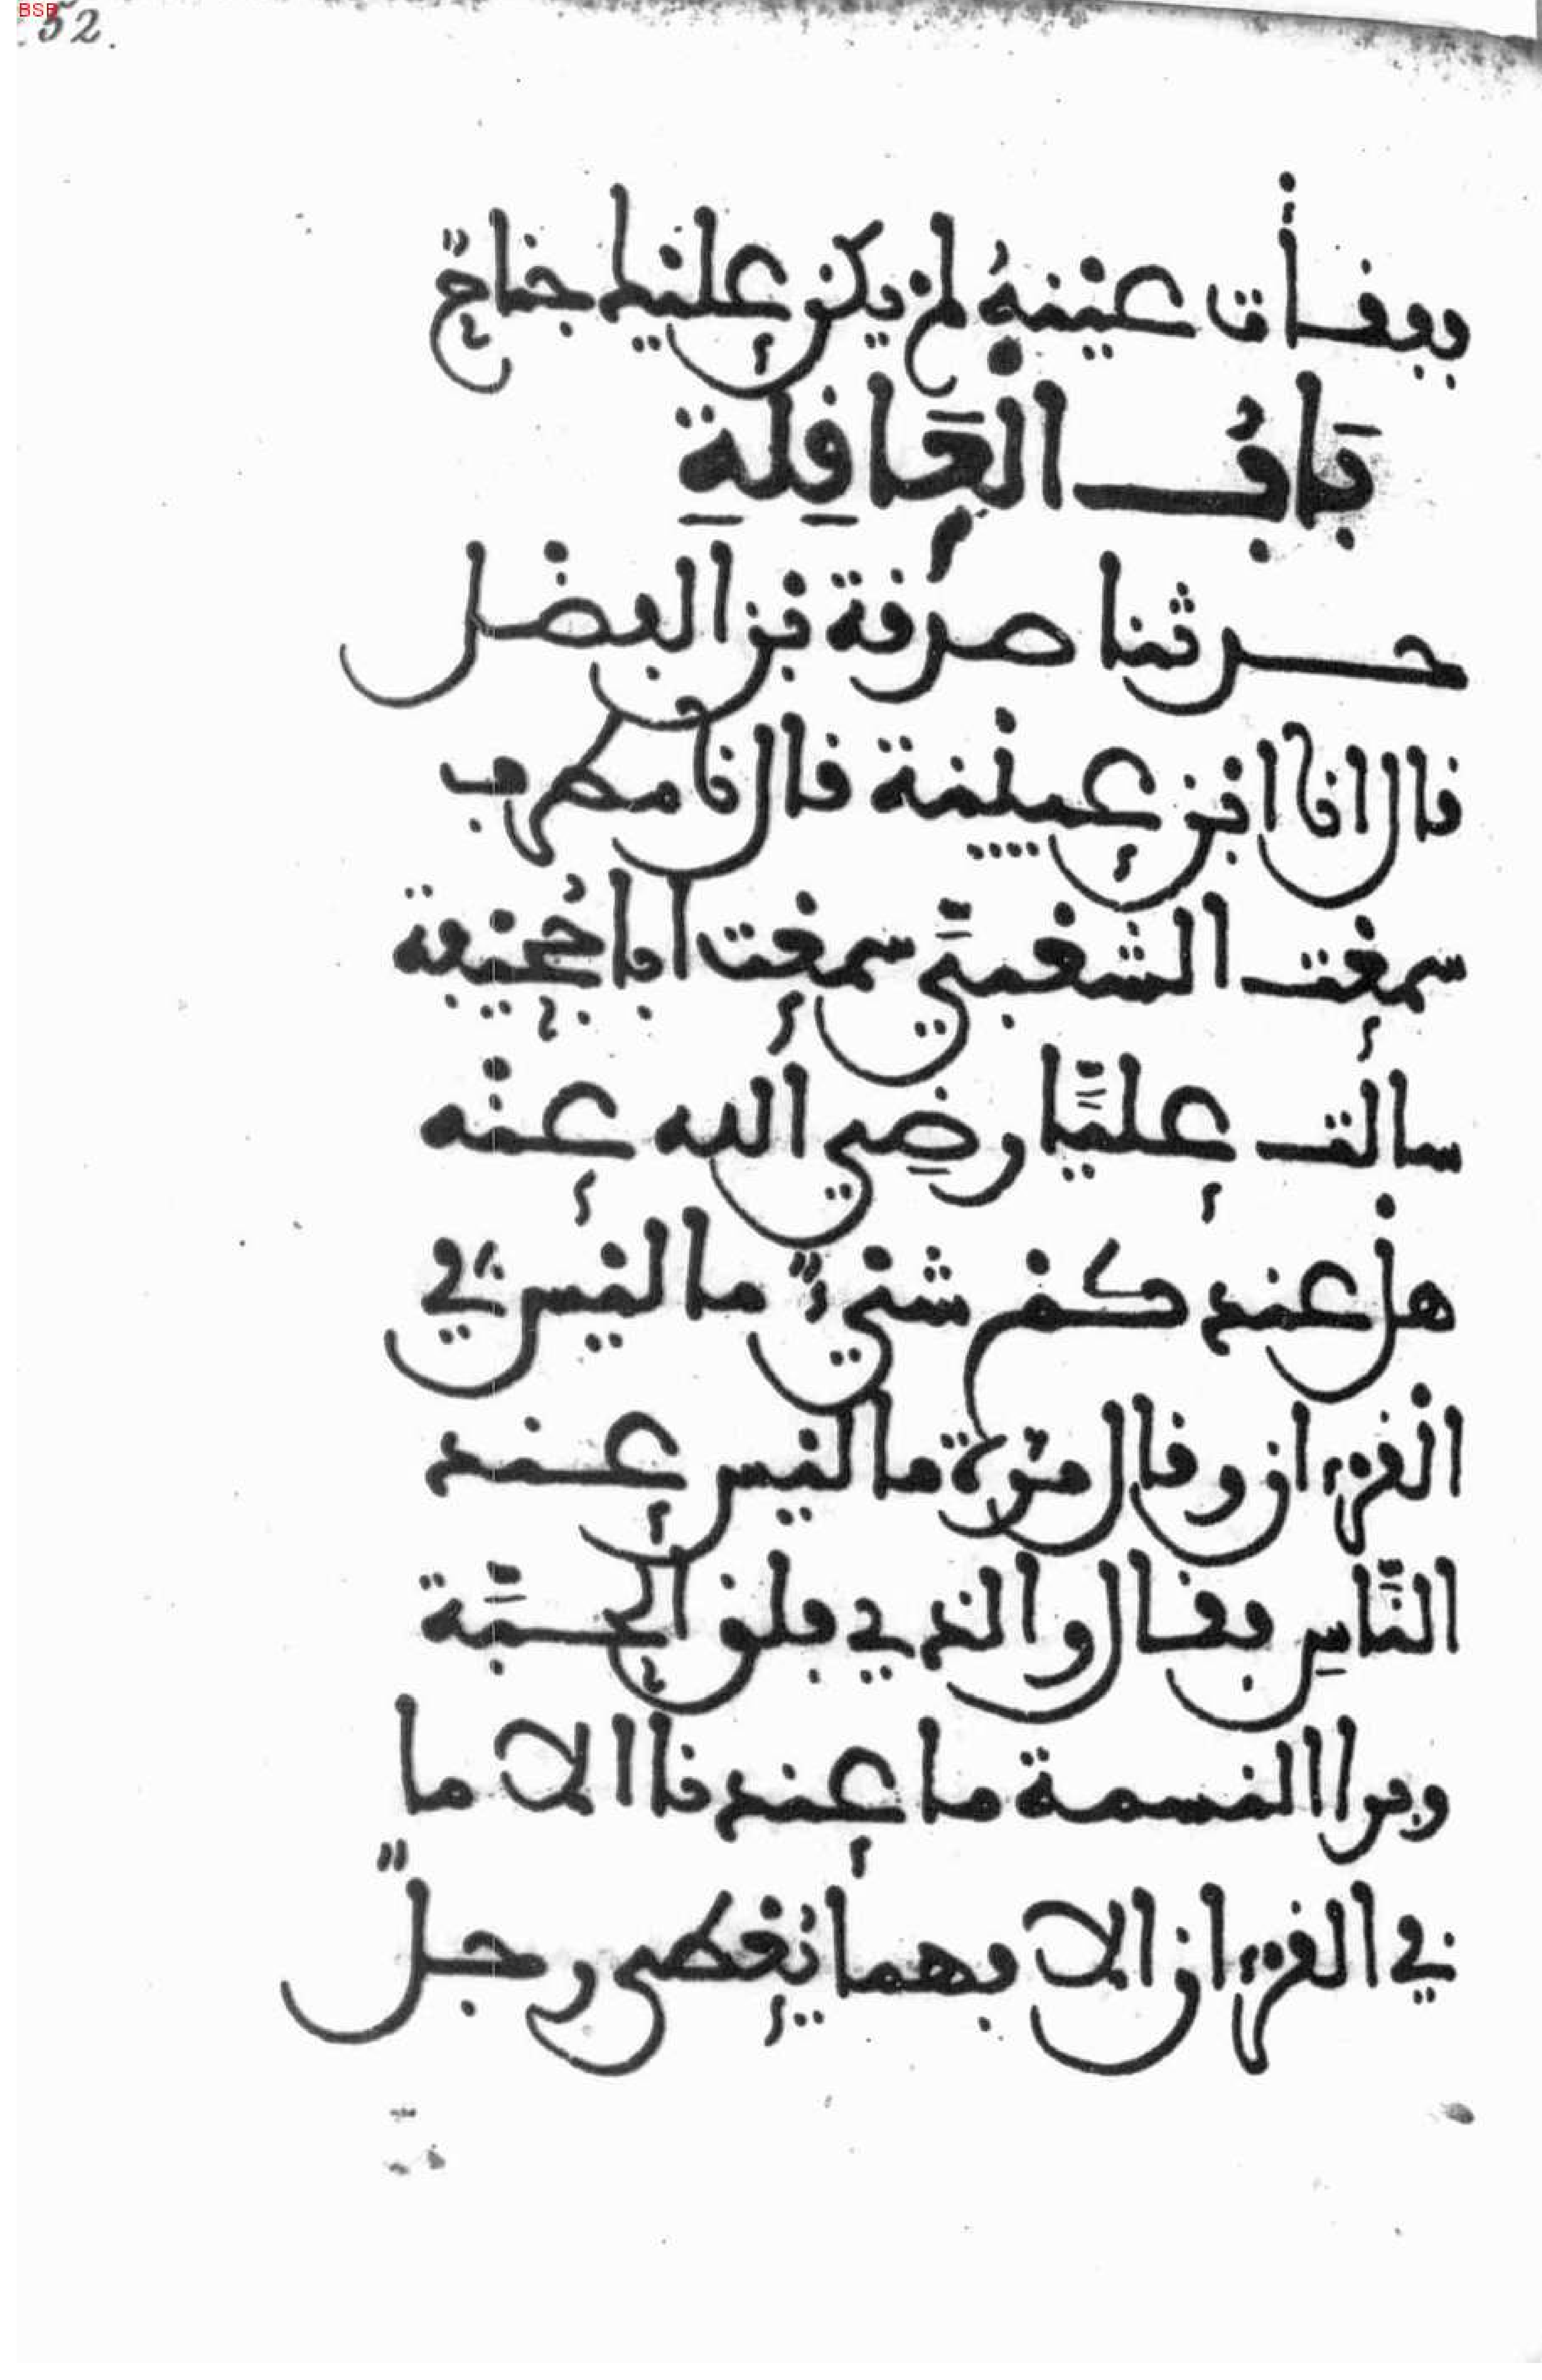 BSB
52.
ففقأت عينه لم يكن عليك جناح
باب العاقلة
حدثنا صدقة بن الفضل
قال انا ابن عيينة قال نا مطرف
سمعت الشعبي سمعت ابا جحيفة
سالت عليا رضي الله عنه
هل عندكم شيء ما ليس في
القرءان وقال مرة ما ليس عند
الناس فقال والذي فلق الحبة
وبرا النسمة ما عندنا الا ما
في القرءان الا فهما يعطى رجل